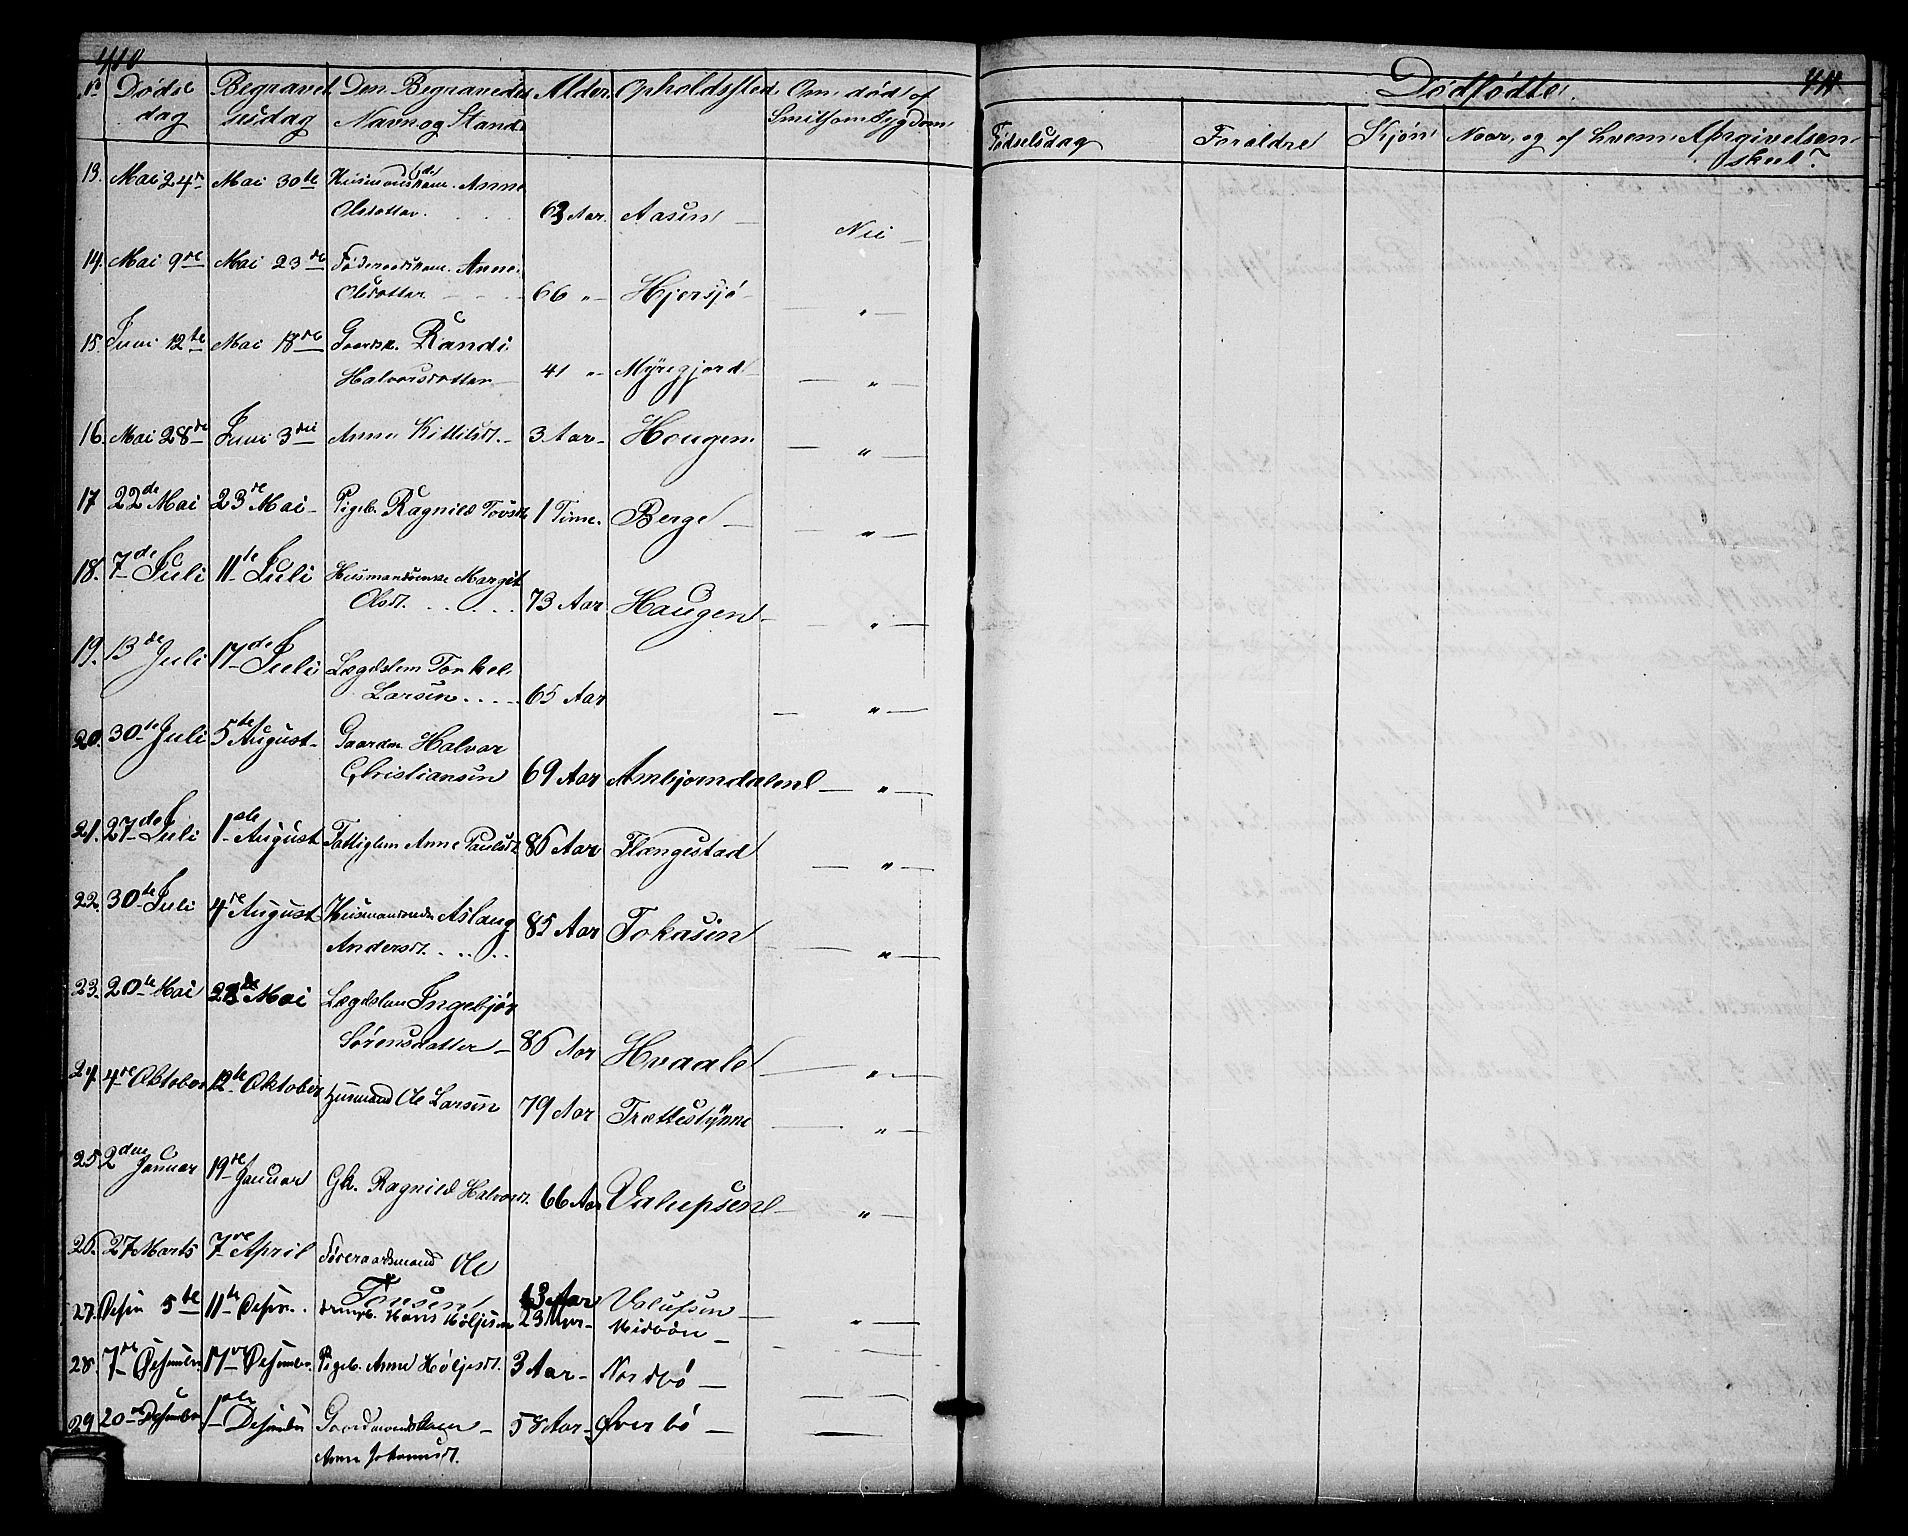 410
No Døds Begravel Den Begravedes Alder. Opholdssted. Om død af
dag sesdag Navn og Stand Smitsom Sygdom
13. Mai 24 Mai 30te Huusmandskone. Anne
Olsdatter. 63 Aar. Aasen Nei
14. Mai 9de Mai 23de Føderaadskone. Anne
Olsdatter 66 " Hjersjø "
15. Juni 12te Mai 18de Gaardk. Randi
Halvorsdatter 41 " Myregjord "
16. Mai 28de Juni 3die Anne Kittilsdt. 3 Aar Hougen "
17 22de Mai 23de Mai Pigeb. Ragnild Tovsdt. 1 Time. Berge "
18. 7de Juli 11te Juli Huusmandsenke Margit
Olsdt. 73 Aar Haugen "
19. 13de Juli 17de Juli Lægdslem Torkel
Larsen 65 Aar "
20. 30te Juli 5te August Gaardm. Halvor
Christiansen 69 Aar Ambjorndalen "
21. 27de Juli 1ste August Fattiglem Anne Paulsdt. 86 Aar Flængestad "
22. 30te Juli 4de August Huusmandsenke Aslaug
Andersdt. 85 Aar Tokasen "
23. 20te Mai 28de Mai Lægdslem Ingebjør
Sørensdatter 86 Aar Hvaale "
24. 4de Oktober 12te Oktober Husmand Ole Larsen 79 Aar Trættestynne "
25. 2den Januar 19de Januar Gk. Ragnild Halvorsdt. 66 Aar "
26. 27 Marts 7de April Føderaadsmand Ole
63 Aar
27. 5te 11te Hans Høljesen 23 Midbøn "
28. 7de Desember 17de Desember Pigeb. Anne Høljesdt. 3 Aar Nordbø
29 20de Desember 1ste Desember Gaardmandskone 58 Aar Øverbø
Anne Johannesdt.
411.
Dødfødte.
Fødselsdag Foreldre Kjøn Naar, og af hvem Afgivelsen
skeet?